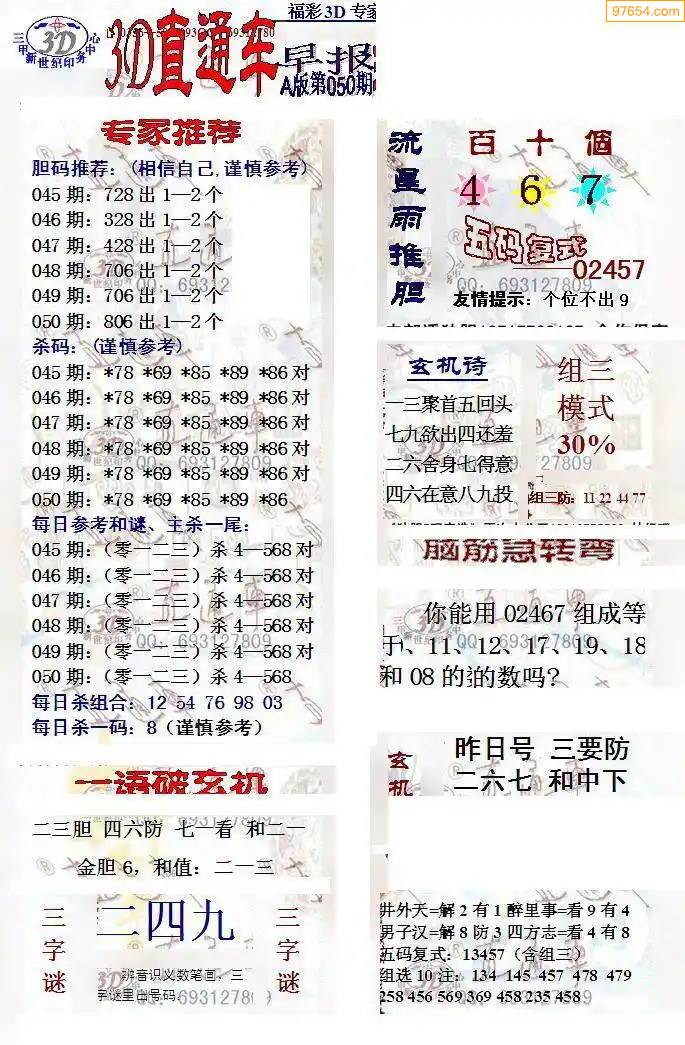 97654.com
福彩3D 专家
三甲新世纪印务中心
3D
3D直通车
早报
A版第050期
专家推荐
胆码推荐：(相信自己,谨慎参考)
045 期：728 出 1—2 个
046 期：328 出 1—2 个
047 期：428 出 1—2 个
048 期：706 出 1—2 个
049 期：706 出 1—2 个
050 期：806 出 1—2 个
杀码：(谨慎参考)
045 期：*78 *69 *85 *89 *86 对
046 期：*78 *69 *85 *89 *86 对
047 期：*78 *69 *85 *89 *86 对
048 期：*78 *69 *85 *89 *86 对
049 期：*78 *69 *85 *89 *86 对
050 期：*78 *69 *85 *89 *86
每日参考和谜、主杀一尾：
045 期：（零一二三）杀 4—568 对
046 期：（零一二三）杀 4—568 对
047 期：（零一二三）杀 4—568 对
048 期：（零一二三）杀 4—568 对
049 期：（零一二三）杀 4—568 对
050 期：（零一二三）杀 4—568
每日杀组合：12 54 76 98 03
每日杀一码：8（谨慎参考）
一语破玄机
二三胆 四六防 七一看 和二一
金胆 6，和值：二一三
三字谜
二四九
三字谜
辨音识义数笔画，三
字谜里出号码。
流星雨推胆
百 十 個
4 6 7
五码复式
——02457
友情提示：个位不出 9
玄机诗
一三聚首五回头
七九欲出四还羞
二六舍身七得意
四六在意八九投
组三
模式
30%
组三防：11 22 44 77
脑筋急转弯
你能用 02467 组成等
于、11、12、17、19、18
和 08 的的数吗?
玄机
昨日号 三要防
二六七 和中下
井外天=解 2 有 1 醉里事=看 9 有 4
男子汉=解 8 防 3 四方志=看 4 有 8
五码复式：13457（含组三）
组选 10 注：134 145 457 478 479
258 456 569 369 458 235 458